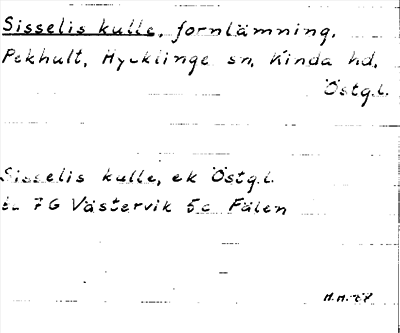 Sisselis kulle, fornlämning,
Pekhult, Hycklinge sn, Kinda hd,
Östg.l.
Sisselis kulle, ek Östg.l.
7G Västervik 5c Fålen